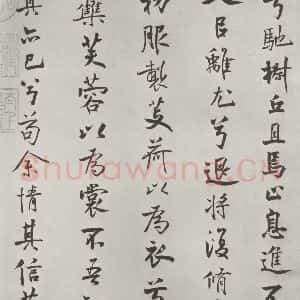 兮馳椒丘且焉止息進不
以離尤兮退將復脩吾
初服製芰荷以為衣兮
集芙蓉以為裳不吾知
其亦已兮苟余情其信芳
Shufawang.CN